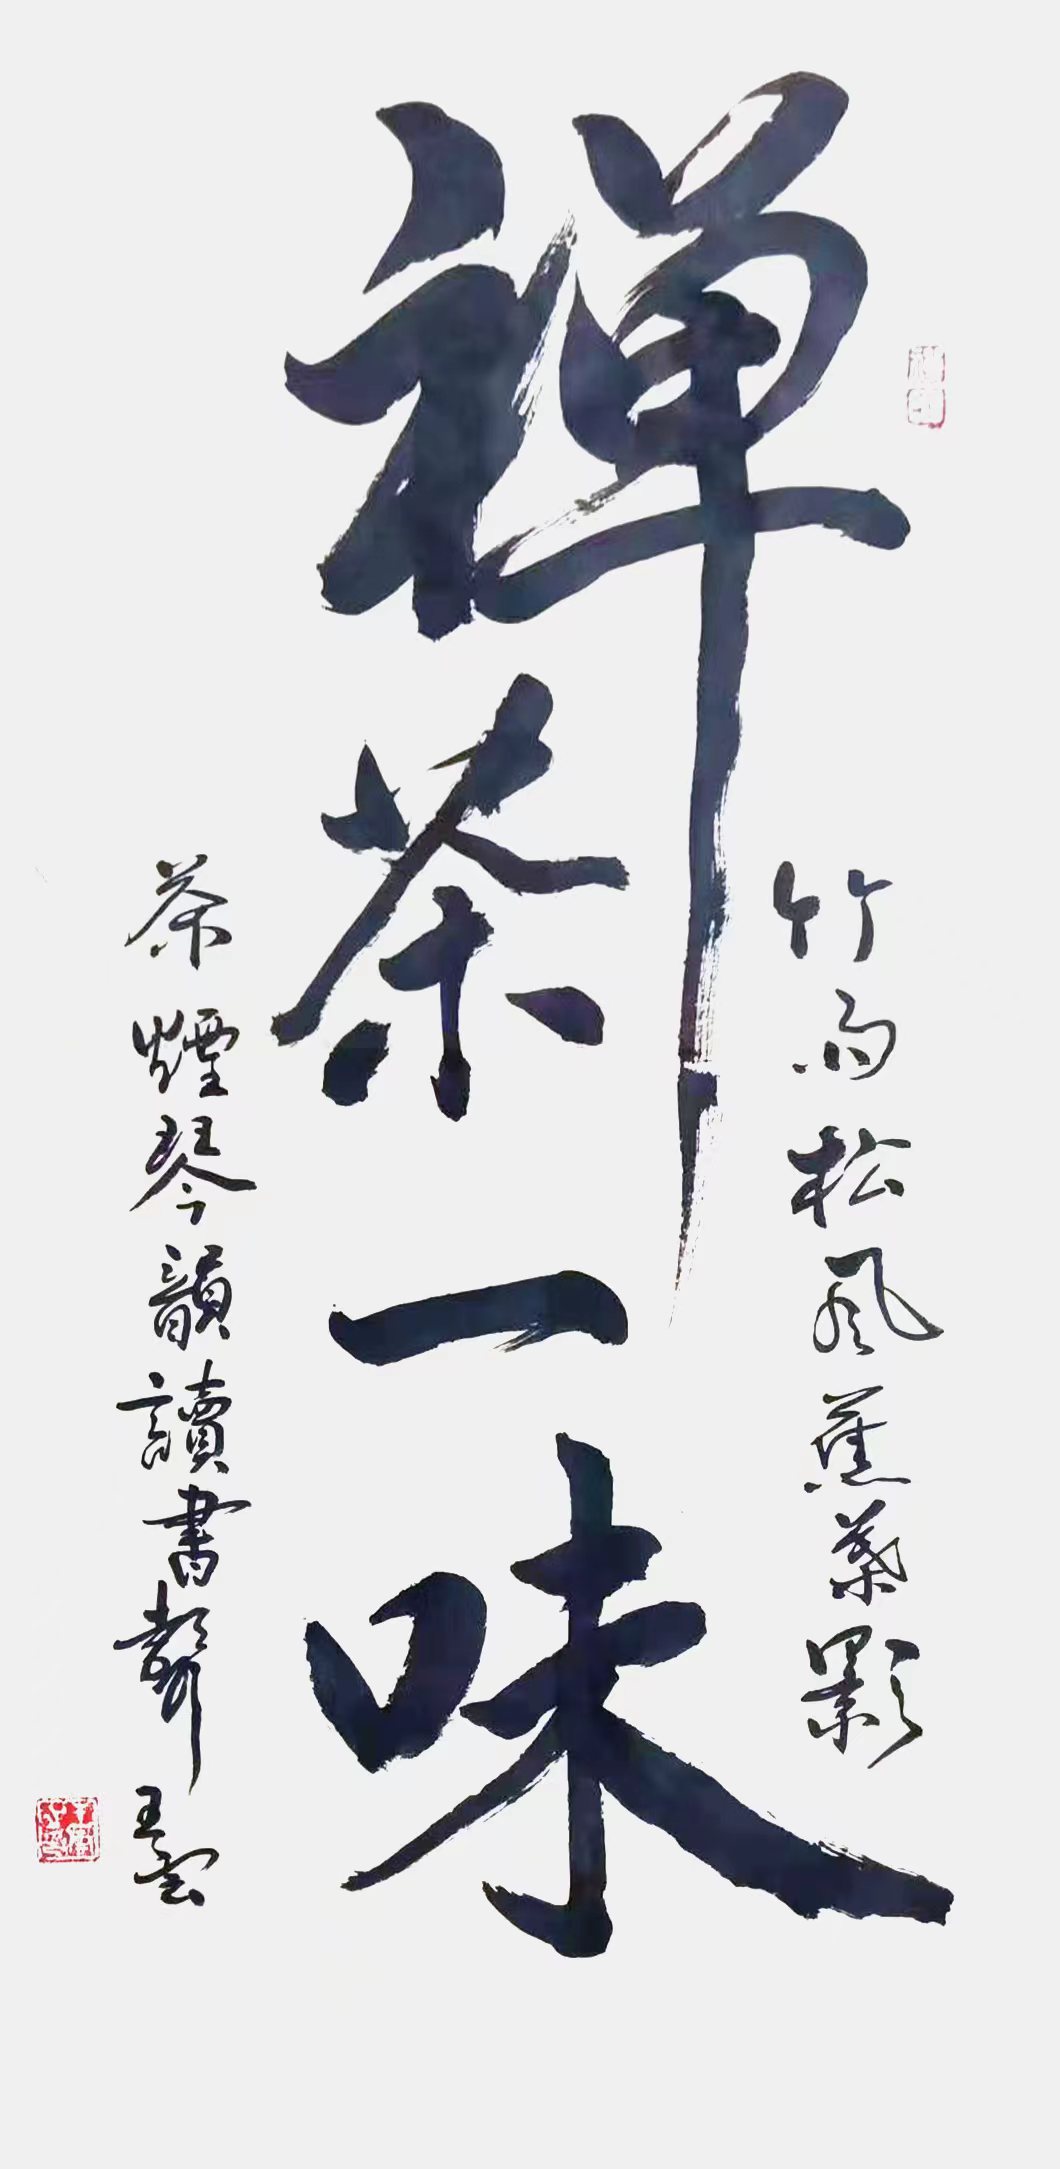 禅茶一味
竹雨松風蕉葉影
茶煙琴韻讀書聲
王雲